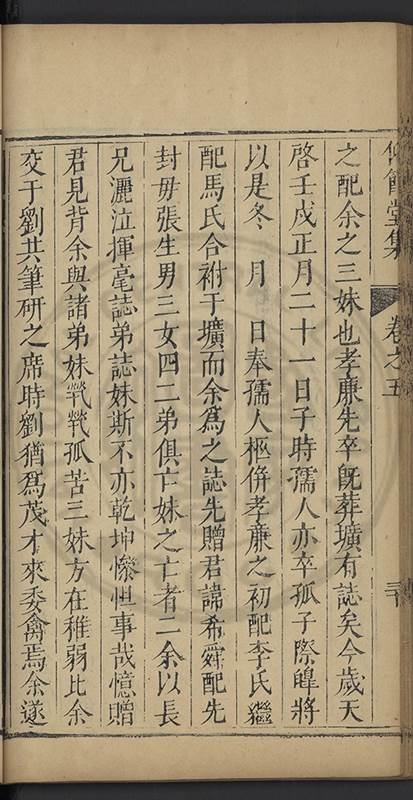 仰節堂集
卷之五
三十
之配余之三妹也孝廉先卒旣葬壙有誌矣今歲天
啓壬戍正月二十一日子時孺人亦卒孤子際皥將
以是冬　月　日奉孺人柩倂孝廉之初配李氏繼
配馬氏合祔于壙而余爲之誌先贈君諱希舜配先
封毋張生男三女四二弟俱亡妹之亡者二余以長
兄灑泣揮毫誌弟誌妹斯不亦乾坤慘怛事哉憶贈
君見背余與諸弟妹煢煢孤苦三妹方在稚弱比余
交于劉共筆研之席時劉猶爲茂才來委禽焉余遂